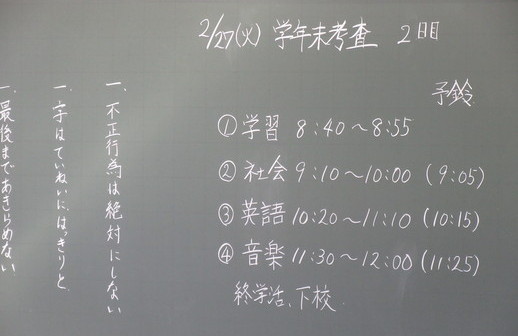 2/27(火) 学年末考査 2日目
予鈴
① 学習 8:40〜8:55
② 社会 9:10〜10:00 (9:05)
③ 英語 10:20〜11:10 (10:15)
④ 音楽 11:30〜12:00 (11:25)
終学活、下校
一、不正行為は絶対にしない
一、字はていねいに、はっきりと
一、最後まであきらめない